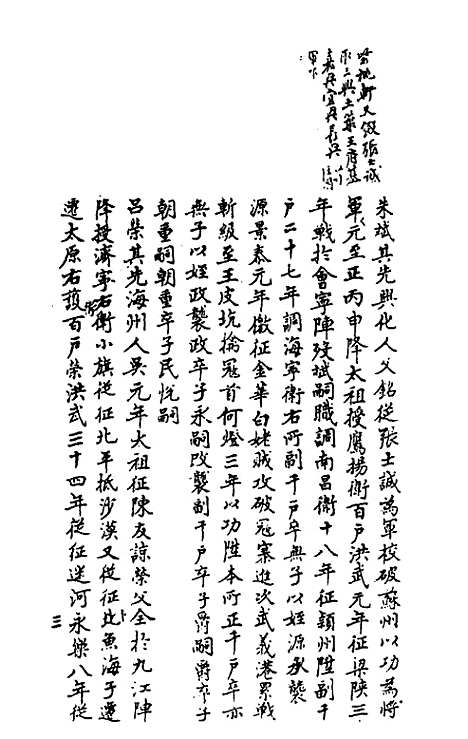 朱斌其先興化人父銘從張士誠萬軍校破蘇州以功為將
軍元至正丙申降太祖授鷹揚衛百戶洪武元年征梁陝三
年戰於會寧陣歿斌嗣職調南昌衛十八年征頴州陞副千
戶二十七年調海寧衛右所副千戶卒無子以姪源承襲
源景泰元年徵征金華白姥賊攻破冦寨進次武義港累戰
斬級至王皮坑擒冦首何燈三年以功陞本所正千戶卒亦
無子以姪政襲政卒子永嗣改襲副千戶卒子爵嗣爵卒子
朝重嗣朝重卒子民悦嗣
呂榮其先海州人吳元年大祖征陳友諒榮父全於九江陣
降投濟寧右衛小旗從征北平抵沙漠又從征北魚海子遷
遷太原右護衛百戶榮洪武三十四年從征迷河永樂八年從
三